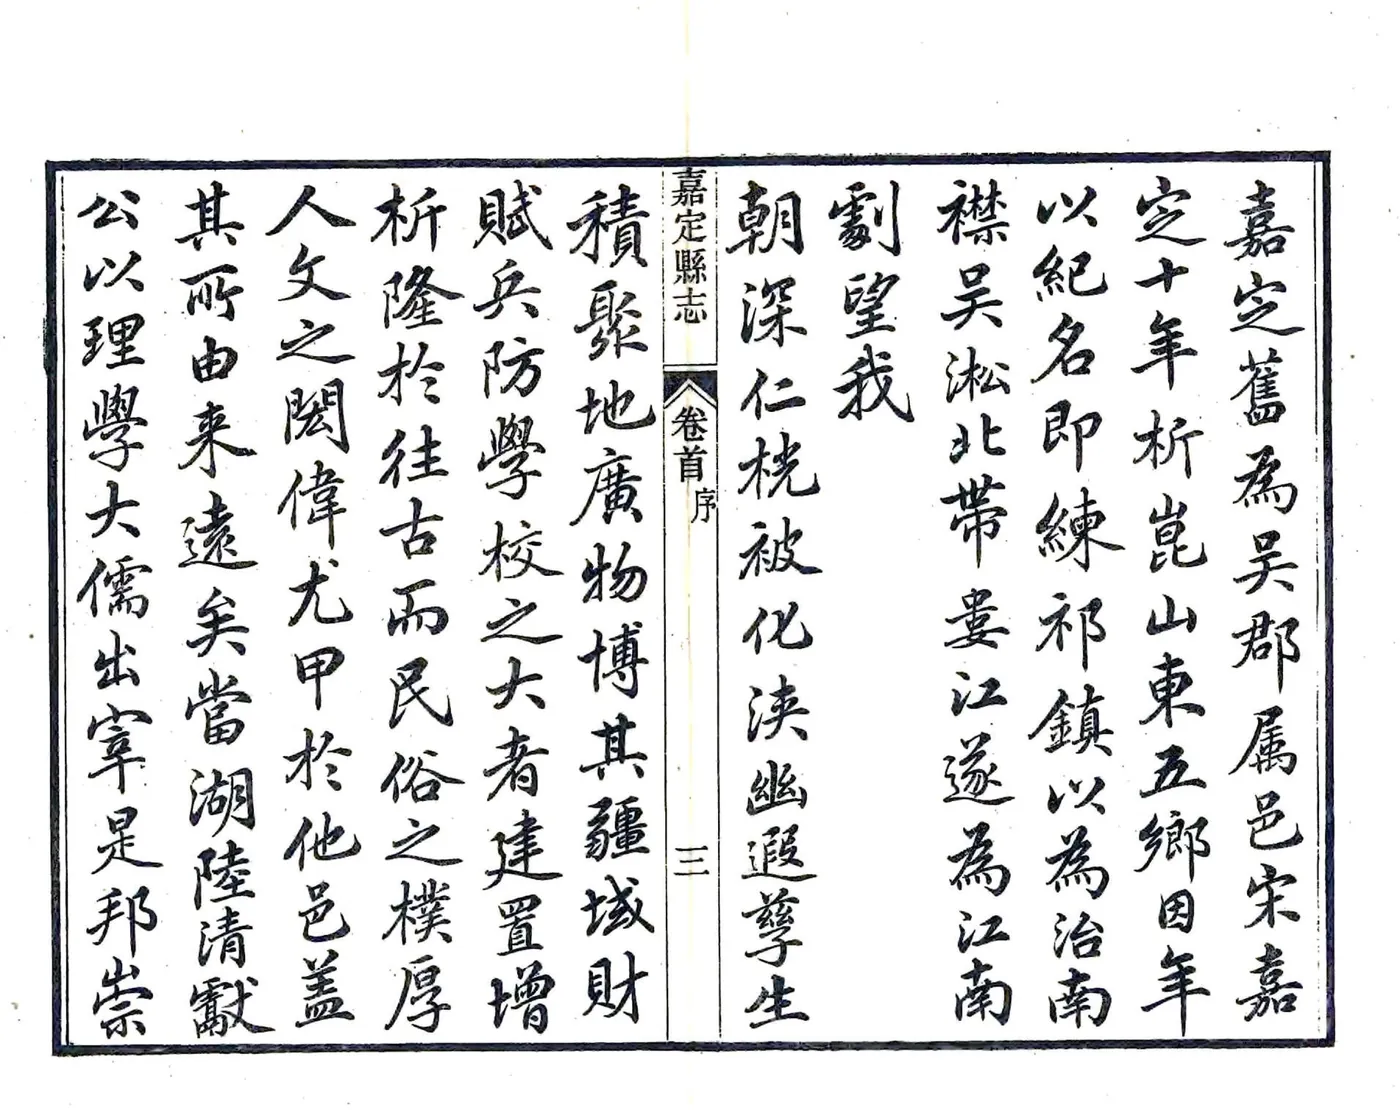 嘉定舊為吳郡属邑宋嘉
定十年析崑山東五鄉因年
以紀名即練祁鎮以為治南
襟吳淞北帶婁江遂為江南
劇望我
朝深仁桄被化浃幽遐孳生
嘉定縣志
卷首
序
三
積聚地廣物博其疆域財
賦兵防學校之大者建置增
析隆於往古而民俗之樸厚
人文之閎偉尤甲於他邑盖
其所由来遠矣當湖陸清獻
公以理學大儒出宰是邦崇